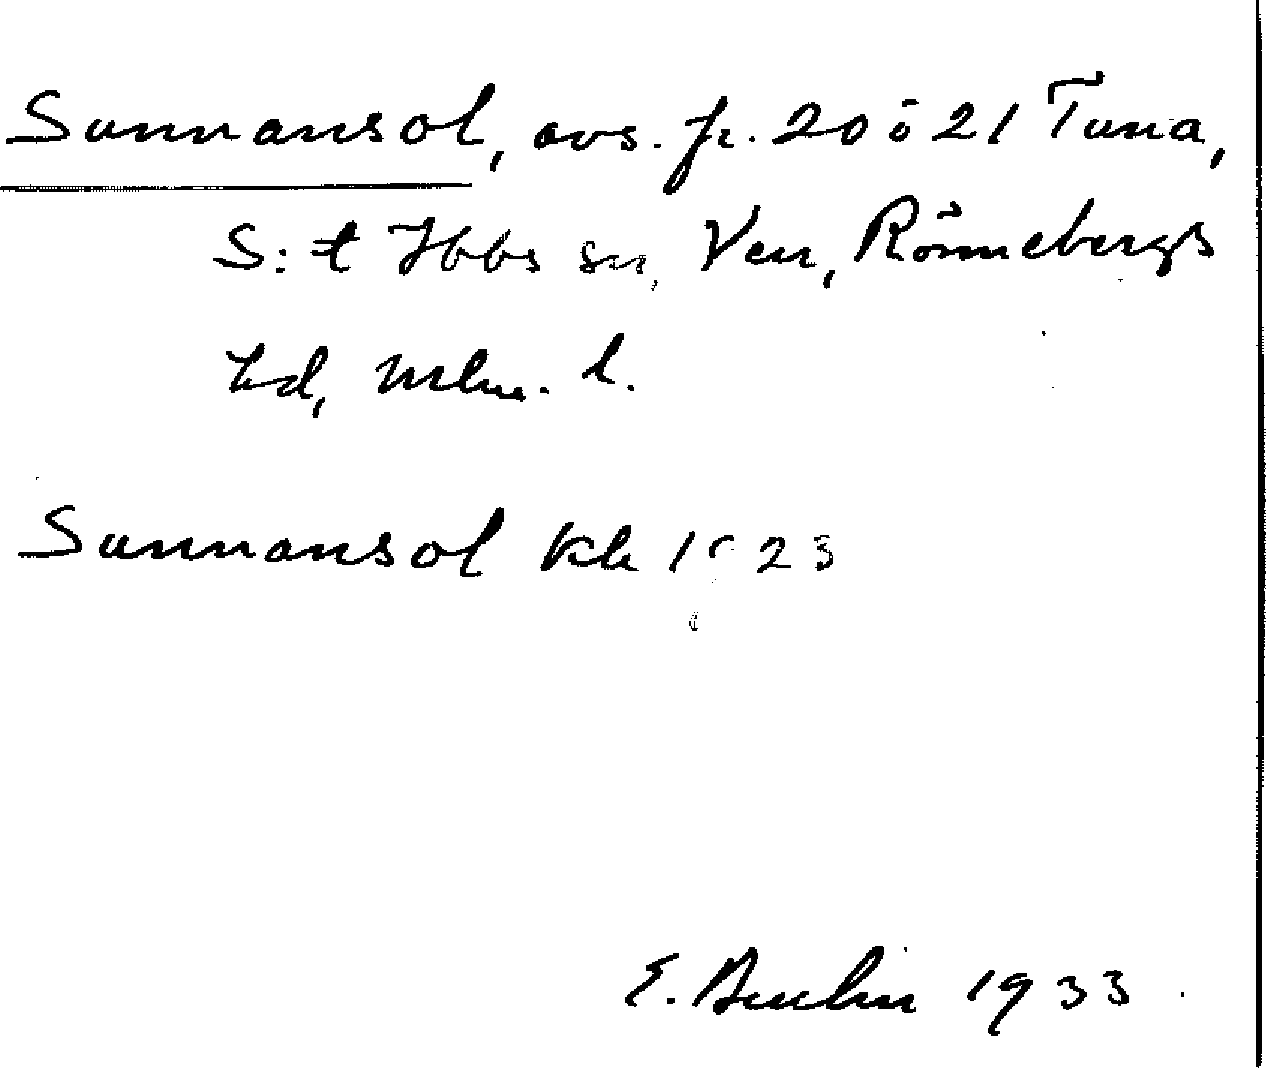 Sunnansol, avs. fr. 20 o 21 Tuna,
S:t Ibbs sn, Ven, Rönnebergs
hd, Mlm. l.
Sunnansol Kb 1923
E. Aurelius 1933